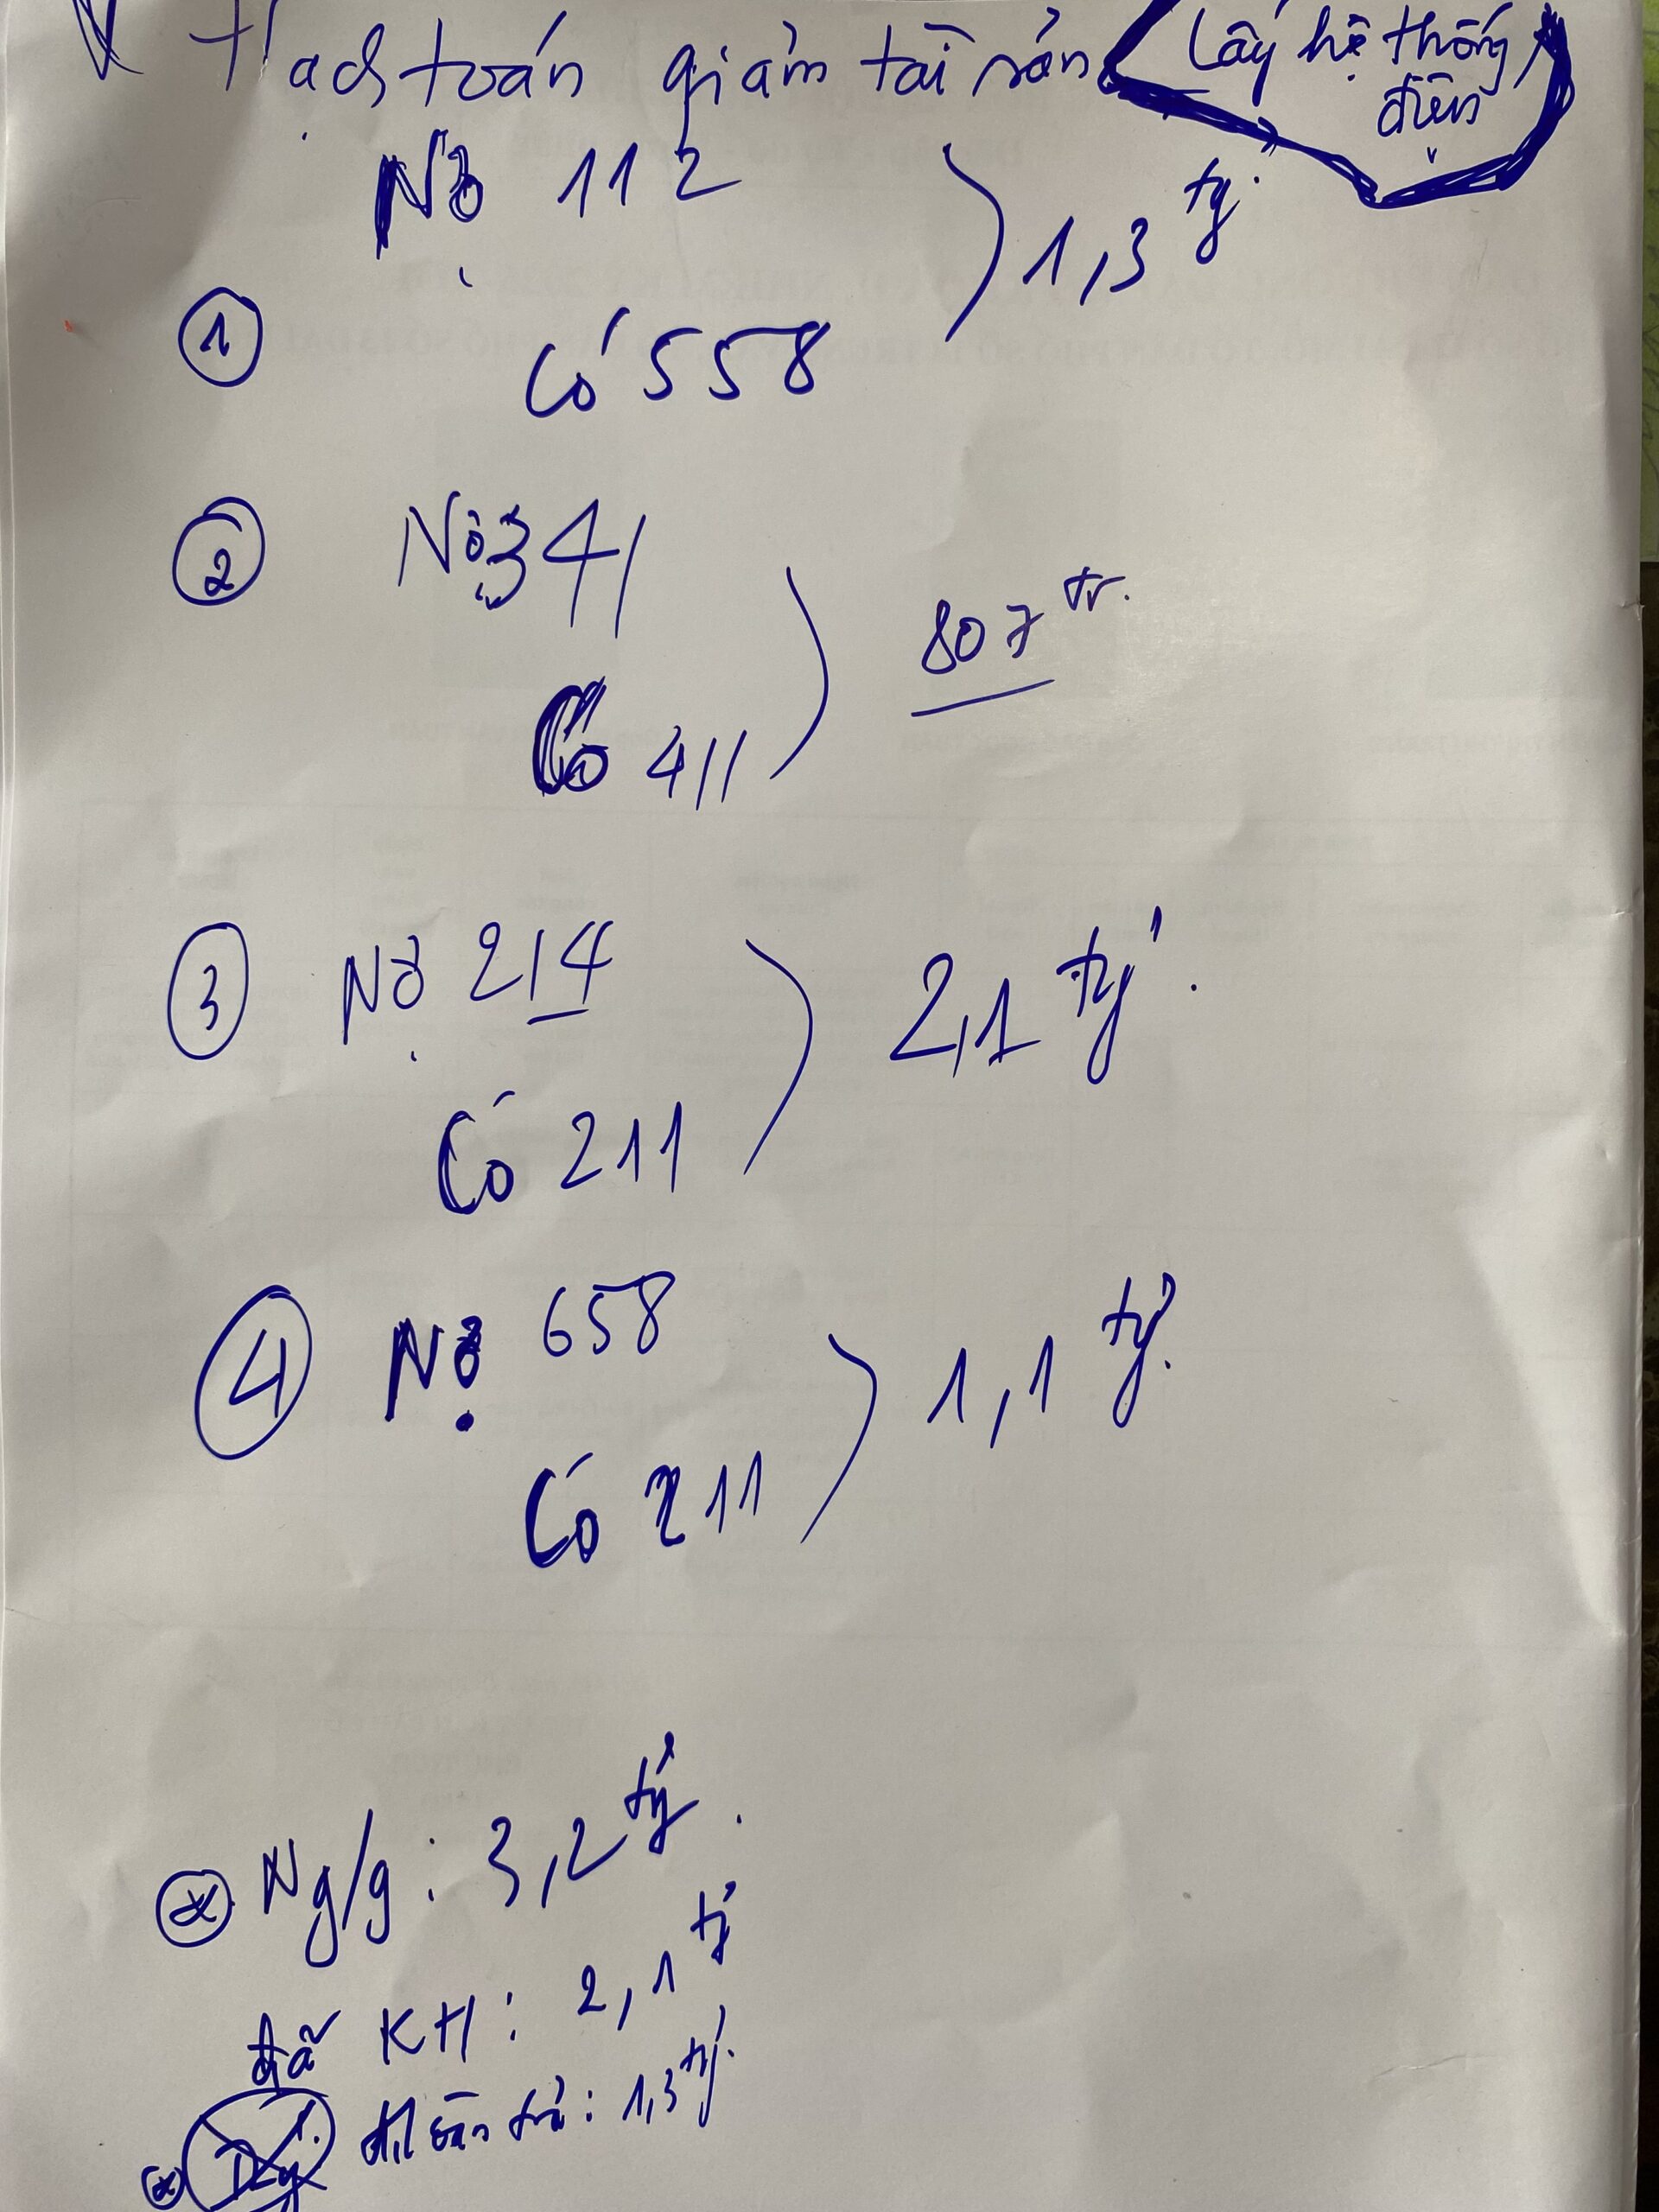 Hạch toán giảm tài sản
Lấy hệ thống
điện
Nợ 112
1,3 tỷ.
1
Có 558
2
Nợ 341
807 tr.
Có 411
3
Nợ 214
2,1 tỷ.
Có 211
4
Nợ 658
1,1 tỷ.
Có 211
Ng/g: 3,2 tỷ.
đã KH: 2,1 tỷ
trả: 1,3 tỷ.